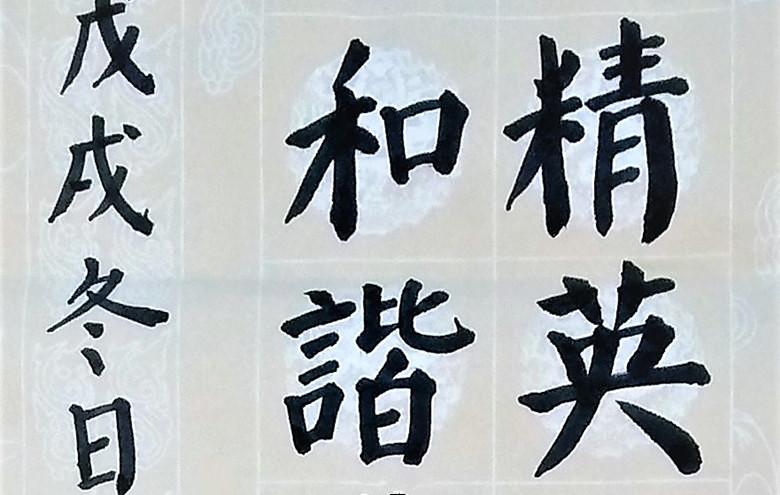 精英
和諧
戊戌冬日